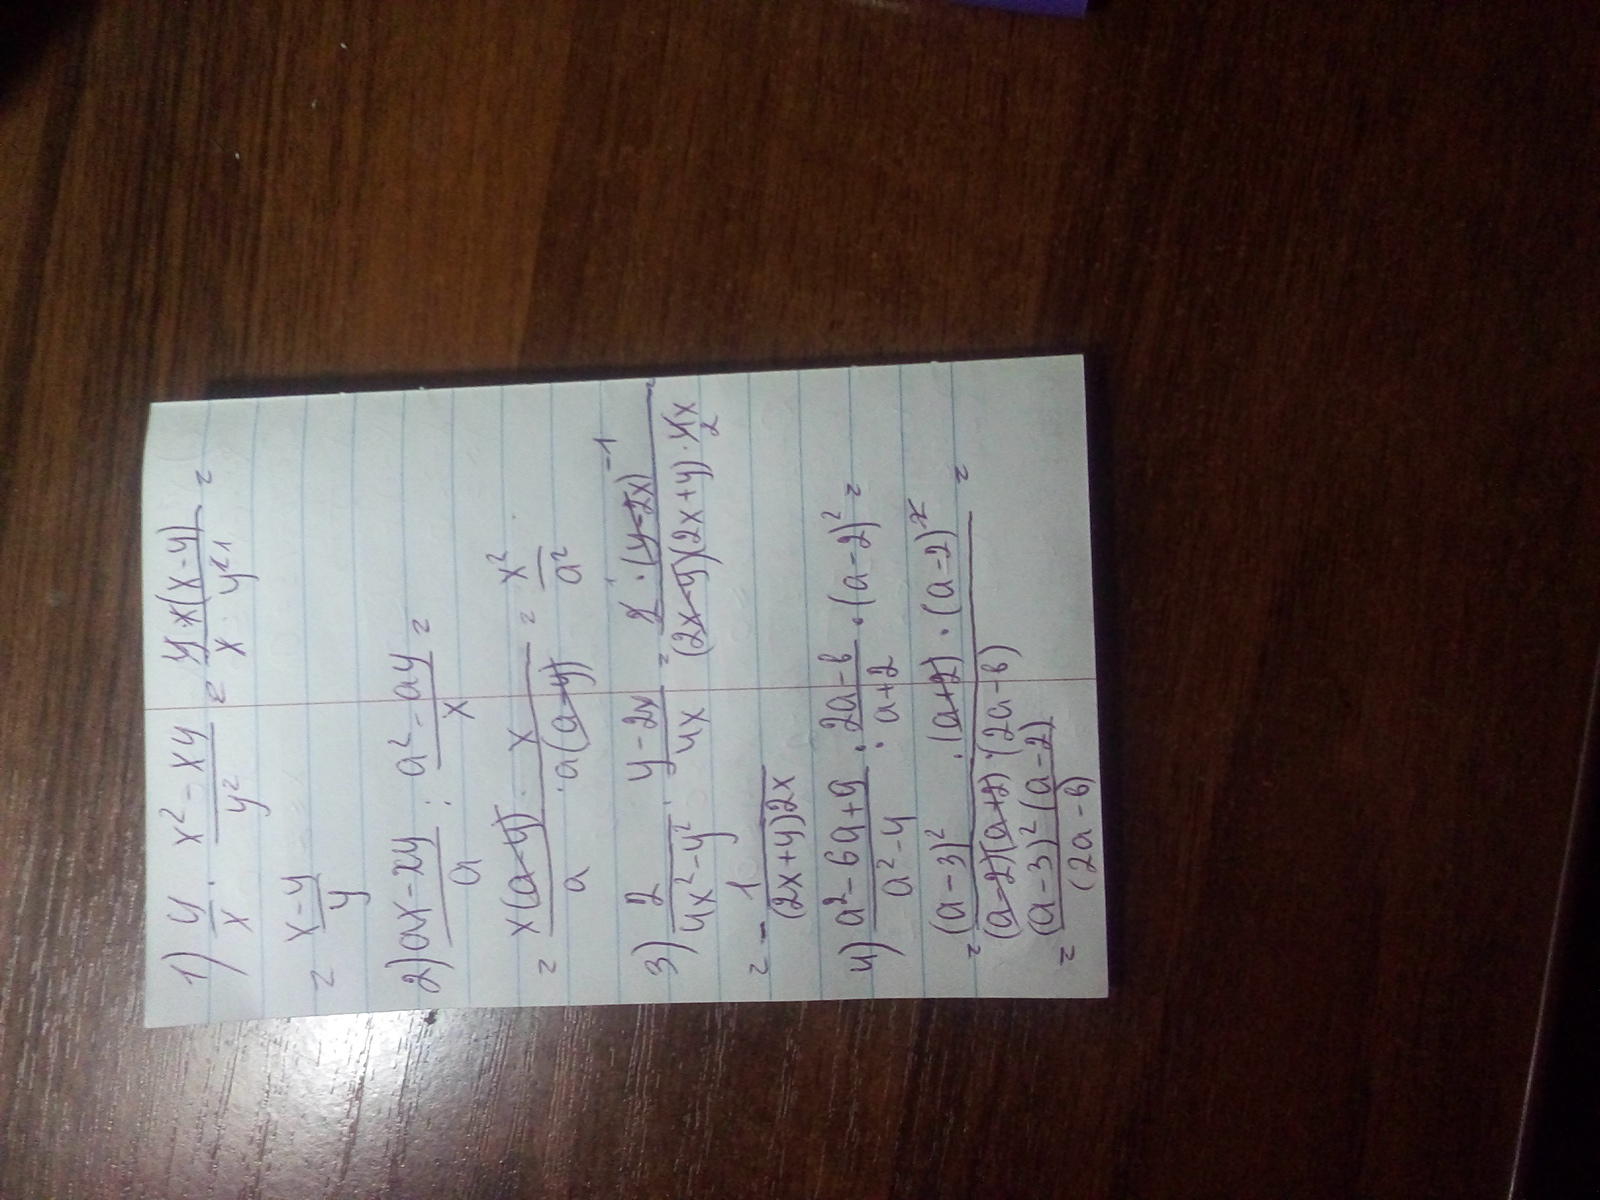 1) y/x · (x² - xy)/y² = (y · x(x-y))/(x · y²) =
= (x-y)/y
2) (ax - xy)/a : (a² - ay)/x =
= (x(a-y))/a · x/(a(a-y)) = x²/a²
3) 2/(4x² - y²) · (y - 2x)/4x = (2 · (y-2x)⁻¹)/((2x-y)(2x+y) · 4x) =
= - 1/((2x+y)2x)
4) (a² - 6a + 9)/(a² - 4) : (2a - 6)/(a+2) · (a-2)² =
= ((a-3)² · (a+2) · (a-2)²)/((a-2)(a+2) · (2a-6)) =
= ((a-3)² (a-2))/(2a-6)